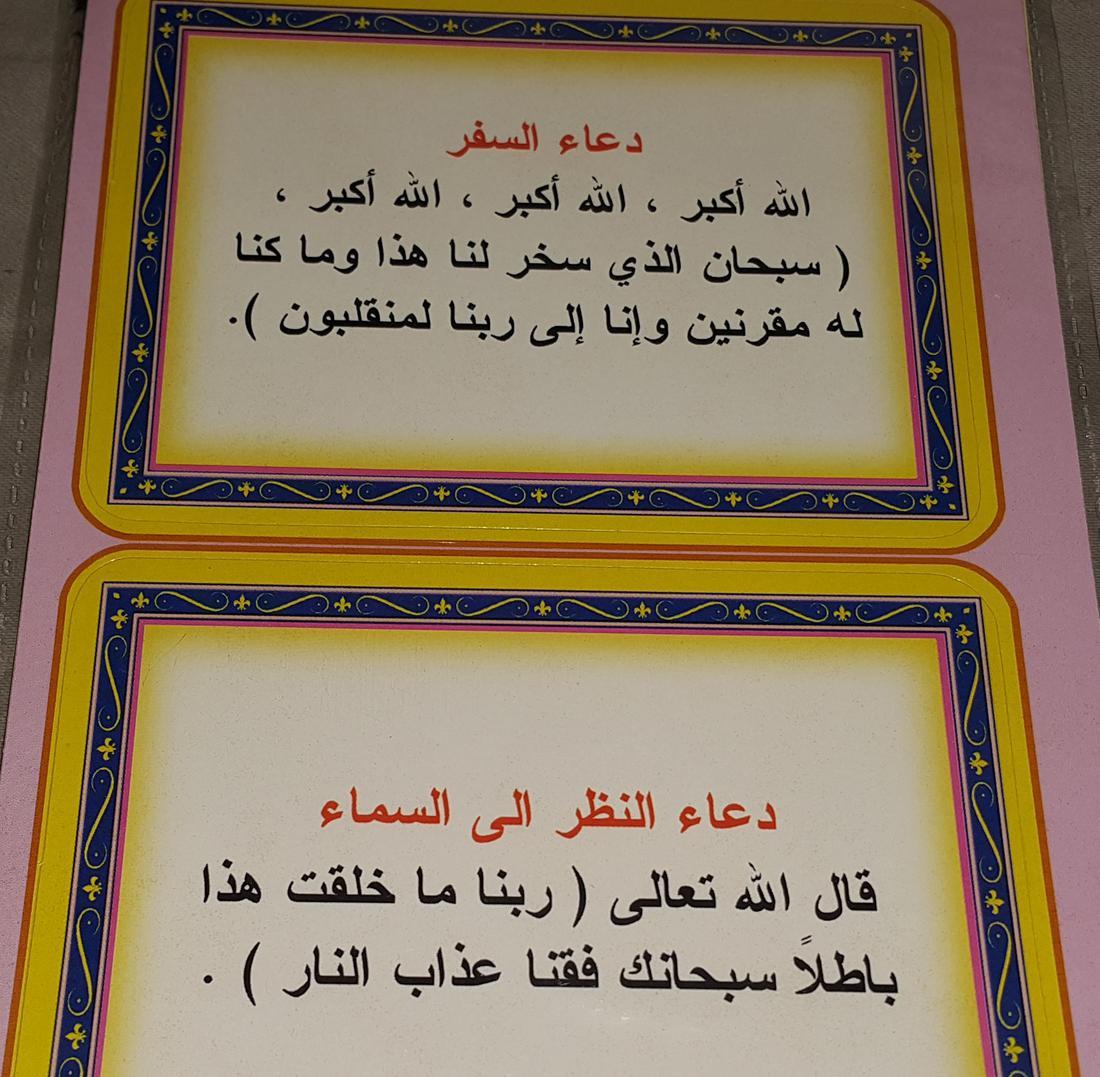 دعاء السفر
الله أكبر ، الله أكبر ، الله أكبر ،
( سبحان الذي سخر لنا هذا وما كنا
له مقرنين وإنا إلى ربنا لمنقلبون ).
دعاء النظر الى السماء
قال الله تعالى ( ربنا ما خلقت هذا
باطلاً سبحانك فقنا عذاب النار ) .